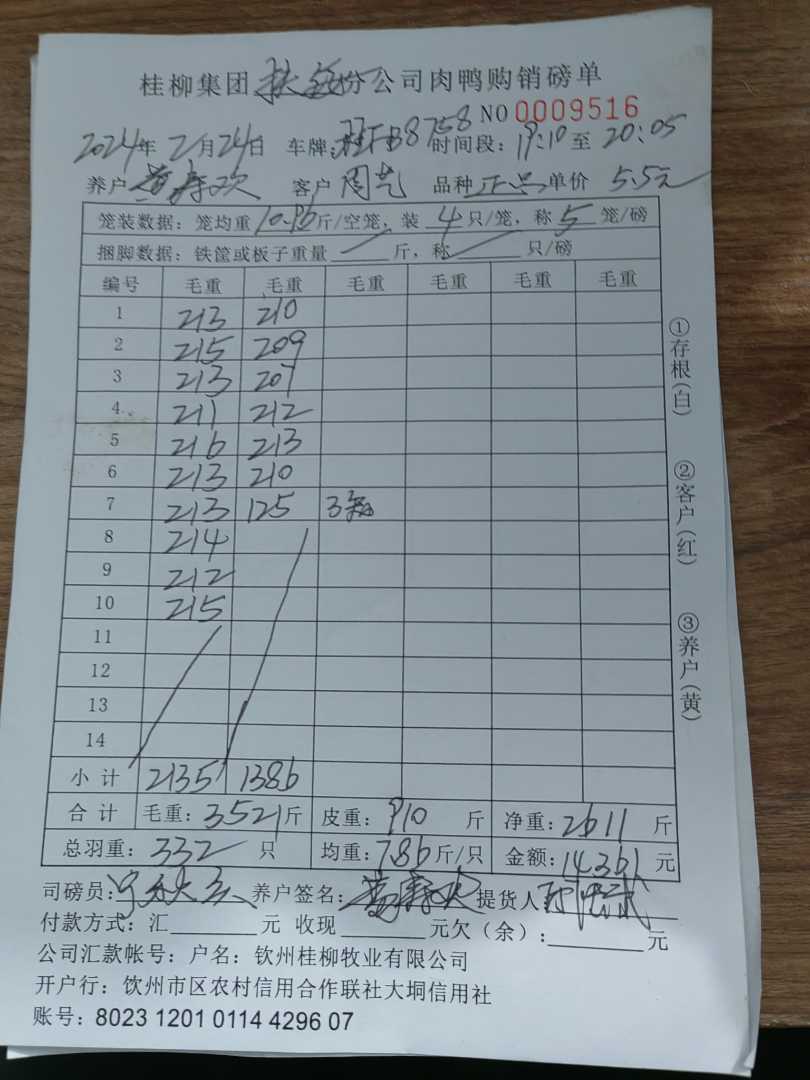 桂柳集团 公司肉鸭购销磅单
NO 0009516
2024年2月24日 车牌:桂FB8758 时间段: 19:10至 20:05
养户 黄寿欢 客户 周艺 品种 正品 单价 5.5元
笼装数据: 笼均重10.96斤/空笼, 装 4 只/笼, 称 5 笼/磅
捆脚数据: 铁筐或板子重量 斤, 称 只/磅
编号 毛重 毛重 毛重 毛重 毛重 毛重
1 213 210
2 215 209
3 213 207
4 211 212
5 216 213
6 213 210
7 213 125 3笼
8 214
9 212
10 215
11
12
13
14
小计 2135 1386
合计 毛重: 3521斤 皮重: 910 斤 净重: 2611 斤
总羽重: 332 只 均重: 7.86斤/只 金额: 14361元
司磅员: 养户签名: 提货人
付款方式: 汇 元 收现 元欠(余): 元
公司汇款帐号: 户名: 钦州桂柳牧业有限公司
开户行: 饮州市区农村信用合作联社大垌信用社
账号: 8023 1201 0114 4296 07
①存根(白)
②客户(红)
③养户(黄)